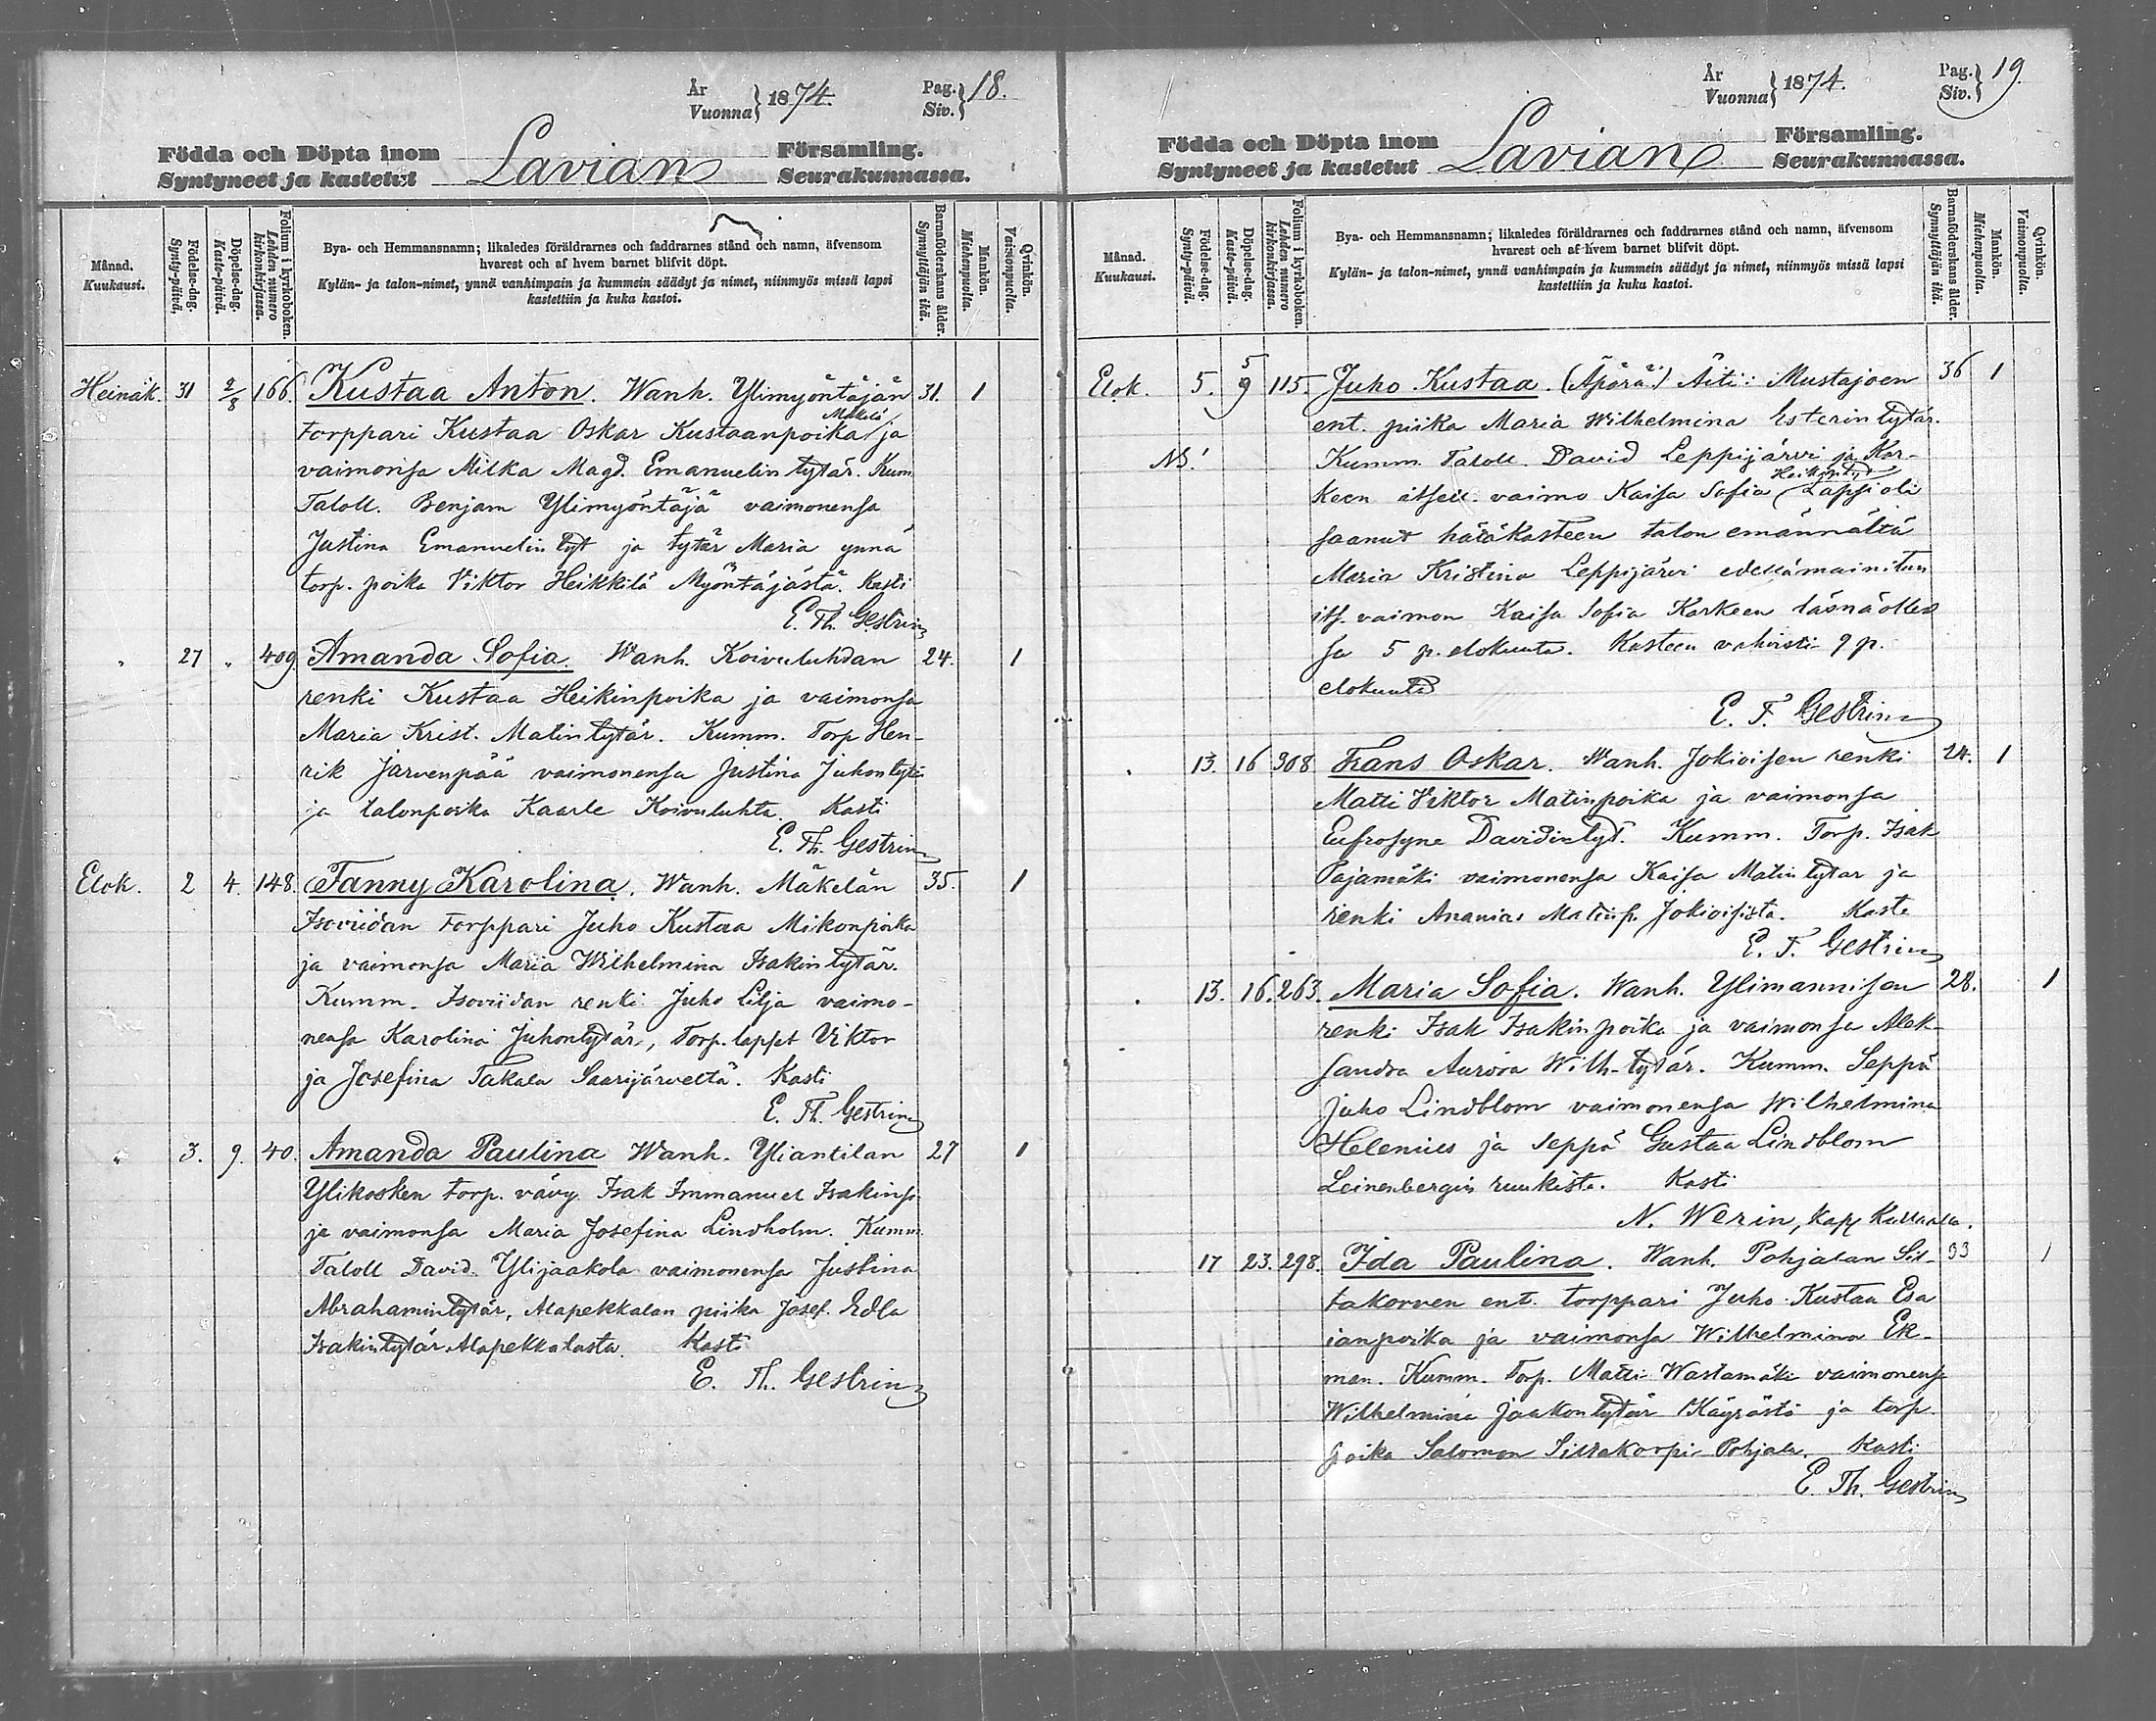 År
Vuonna } 1874.
Pag.
Siv. } 18.
Födda och Döpta inom
Syntyneet ja kastetut
Lavian
Församling.
Seurakunnassa.
Månad.
Kuukausi.
Födelse-dag.
Synty-päivä.
Döpelse-dag.
Kaste-päivä.
Folium i kyrkoboken.
Lehden numero
kirkonkirjassa.
Bya- och Hemmansnamn; likaledes föräldrarnes och faddrarnes stånd och namn, äfvensom
hvarest och af hvem barnet blifvit döpt.
Kylän- ja talon-nimet, ynnä vanhimpain ja kummein säädyt ja nimet, niinmyös missä lapsi
kastettiin ja kuka kastoi.
Barnaföderskans ålder.
Synnyttäjän ikä.
Mankön.
Miehenpuolia.
Qvinkön.
Vaimonpuolia.
Heinäk. 31 2/8 166. Kustaa Anton. Wanh. Ylimyöntäjän 31. 1
torppari Kustaa Oskar Kustaanpoika ja
vaimonsa Milka Magd. Emanuelin tytär. Kum
Taloll. Benjam Ylimyöntäjä vaimonensa
Justina Emanuelin tyt ja tytär Maria ynnä
torp. poika Viktor Heikkilä Myöntäjästä. Kasti
E. Th. Gestrin
" 27 " 409 Amanda Sofia. Wanh. Koivuluhdan 24. 1
renki Kustaa Heikinpoika ja vaimonsa
Maria Krist. Matintytär. Kumm. Torp Hen-
rik Järvenpää vaimonensa Justina Juhontytär
ja talonpoika Kaarle Koivuluhta. Kasti
E. Th. Gestrin
Elok. 2 4. 148. Fanny Karolina. Wanh. Mäkelän 35. 1
Isoviidan torppari Juho Kustaa Mikonpoika
ja vaimonsa Maria Wilhelmina Isakintytär.
Kumm. Isoviidan renki Juho Lilja vaimo-
nensa Karolina Juhontytär, Torp. lapset Viktor
ja Josefina Takala Saarijärveltä. Kasti
E. Th. Gestrin
" 3. 9. 40. Amanda Paulina Wanh. Yliantilan 27 1
Ylikosken torp. vävy Isak Immanuel Isakinp.
ja vaimonsa Maria Josefina Lindholm. Kumm.
Taloll David Ylijaakola vaimonensa Justina
Abrahamintytär, Alapekkalan piika Josef. Edla
Isakintytär Alapekkalasta. Kasti
E. Th. Gestrin
År
Vuonna } 1874.
Pag.
Siv. } 19.
Födda och Döpta inom
Syntyneet ja kastetut
Lavian
Församling.
Seurakunnassa.
Månad.
Kuukausi.
Födelse-dag.
Synty-päivä.
Döpelse-dag.
Kaste-päivä.
Folium i kyrkoboken.
Lehden numero
kirkonkirjassa.
Bya- och Hemmansnamn; likaledes föräldrarnes och faddrarnes stånd och namn, äfvensom
hvarest och af hvem barnet blifvit döpt.
Kylän- ja talon-nimet, ynnä vanhimpain ja kummein säädyt ja nimet, niinmyös missä lapsi
kastettiin ja kuka kastoi.
Barnaföderskans ålder.
Synnyttäjän ikä.
Mankön.
Miehenpuolia.
Qvinkön.
Vaimonpuolia.
5
Elok. 5. 9 115. Juho Kustaa. (Äpärä.) Äiti: Mustajoen 36 1
ent. piika Maria Wilhelmina Esterintytär.
NB! Kumm. Taloll. David Leppijärvi ja Kar-
keen itsell. vaimo Kaisa Sofia Lapsi oli
saanut hätäkasteen talon emännältä
Maria Kristina Leppijärvi edellämainitun
its. vaimon Kaisa Sofia Karkeen läsnäolles
sa 5 p. elokuuta. Kasteen vahvisti 9 p.
elokuuta
E. T. Gestrin
" 13. 16 308 Frans Oskar. Wanh. Jokioisen renki 24. 1
Matti Viktor Matinpoika ja vaimonsa
Eufrosyne Davidintyt. Kumm. Torp. Isak
Pajamäki vaimonensa Kaisa Matintytar ja
renki Ananias Matinp. Jokioisista. Kasti
E. T. Gestrin
" 13. 16. 263. Maria Sofia. Wanh. Ylimannisen 28. 1
renki Isak Isakinpoika ja vaimonsa Alek-
sandra Aurora Wilh-tytär. Kumm. Seppä
Juho Lindblom vaimonensa Wilhelmina
Helenius ja seppä Gustaa Lindblom
Leinenbergin ruukista. Kasti
N. Werin, Kap Kullaala.
17 23. 298. Ida Paulina. Wanh. Pohjalan Sil- 33 1
takorven ent. torppari Juho Kustaa Esa
ianpoika ja vaimonsa Wilhelmina Ek-
man. Kumm. Torp. Matti Wastamäki vaimonensa
Wilhelmina Jaakontytär Käyrästä ja torp.
poika Salomon Siltakorpi Pohjala. Kasti
E. Th. Gestrin